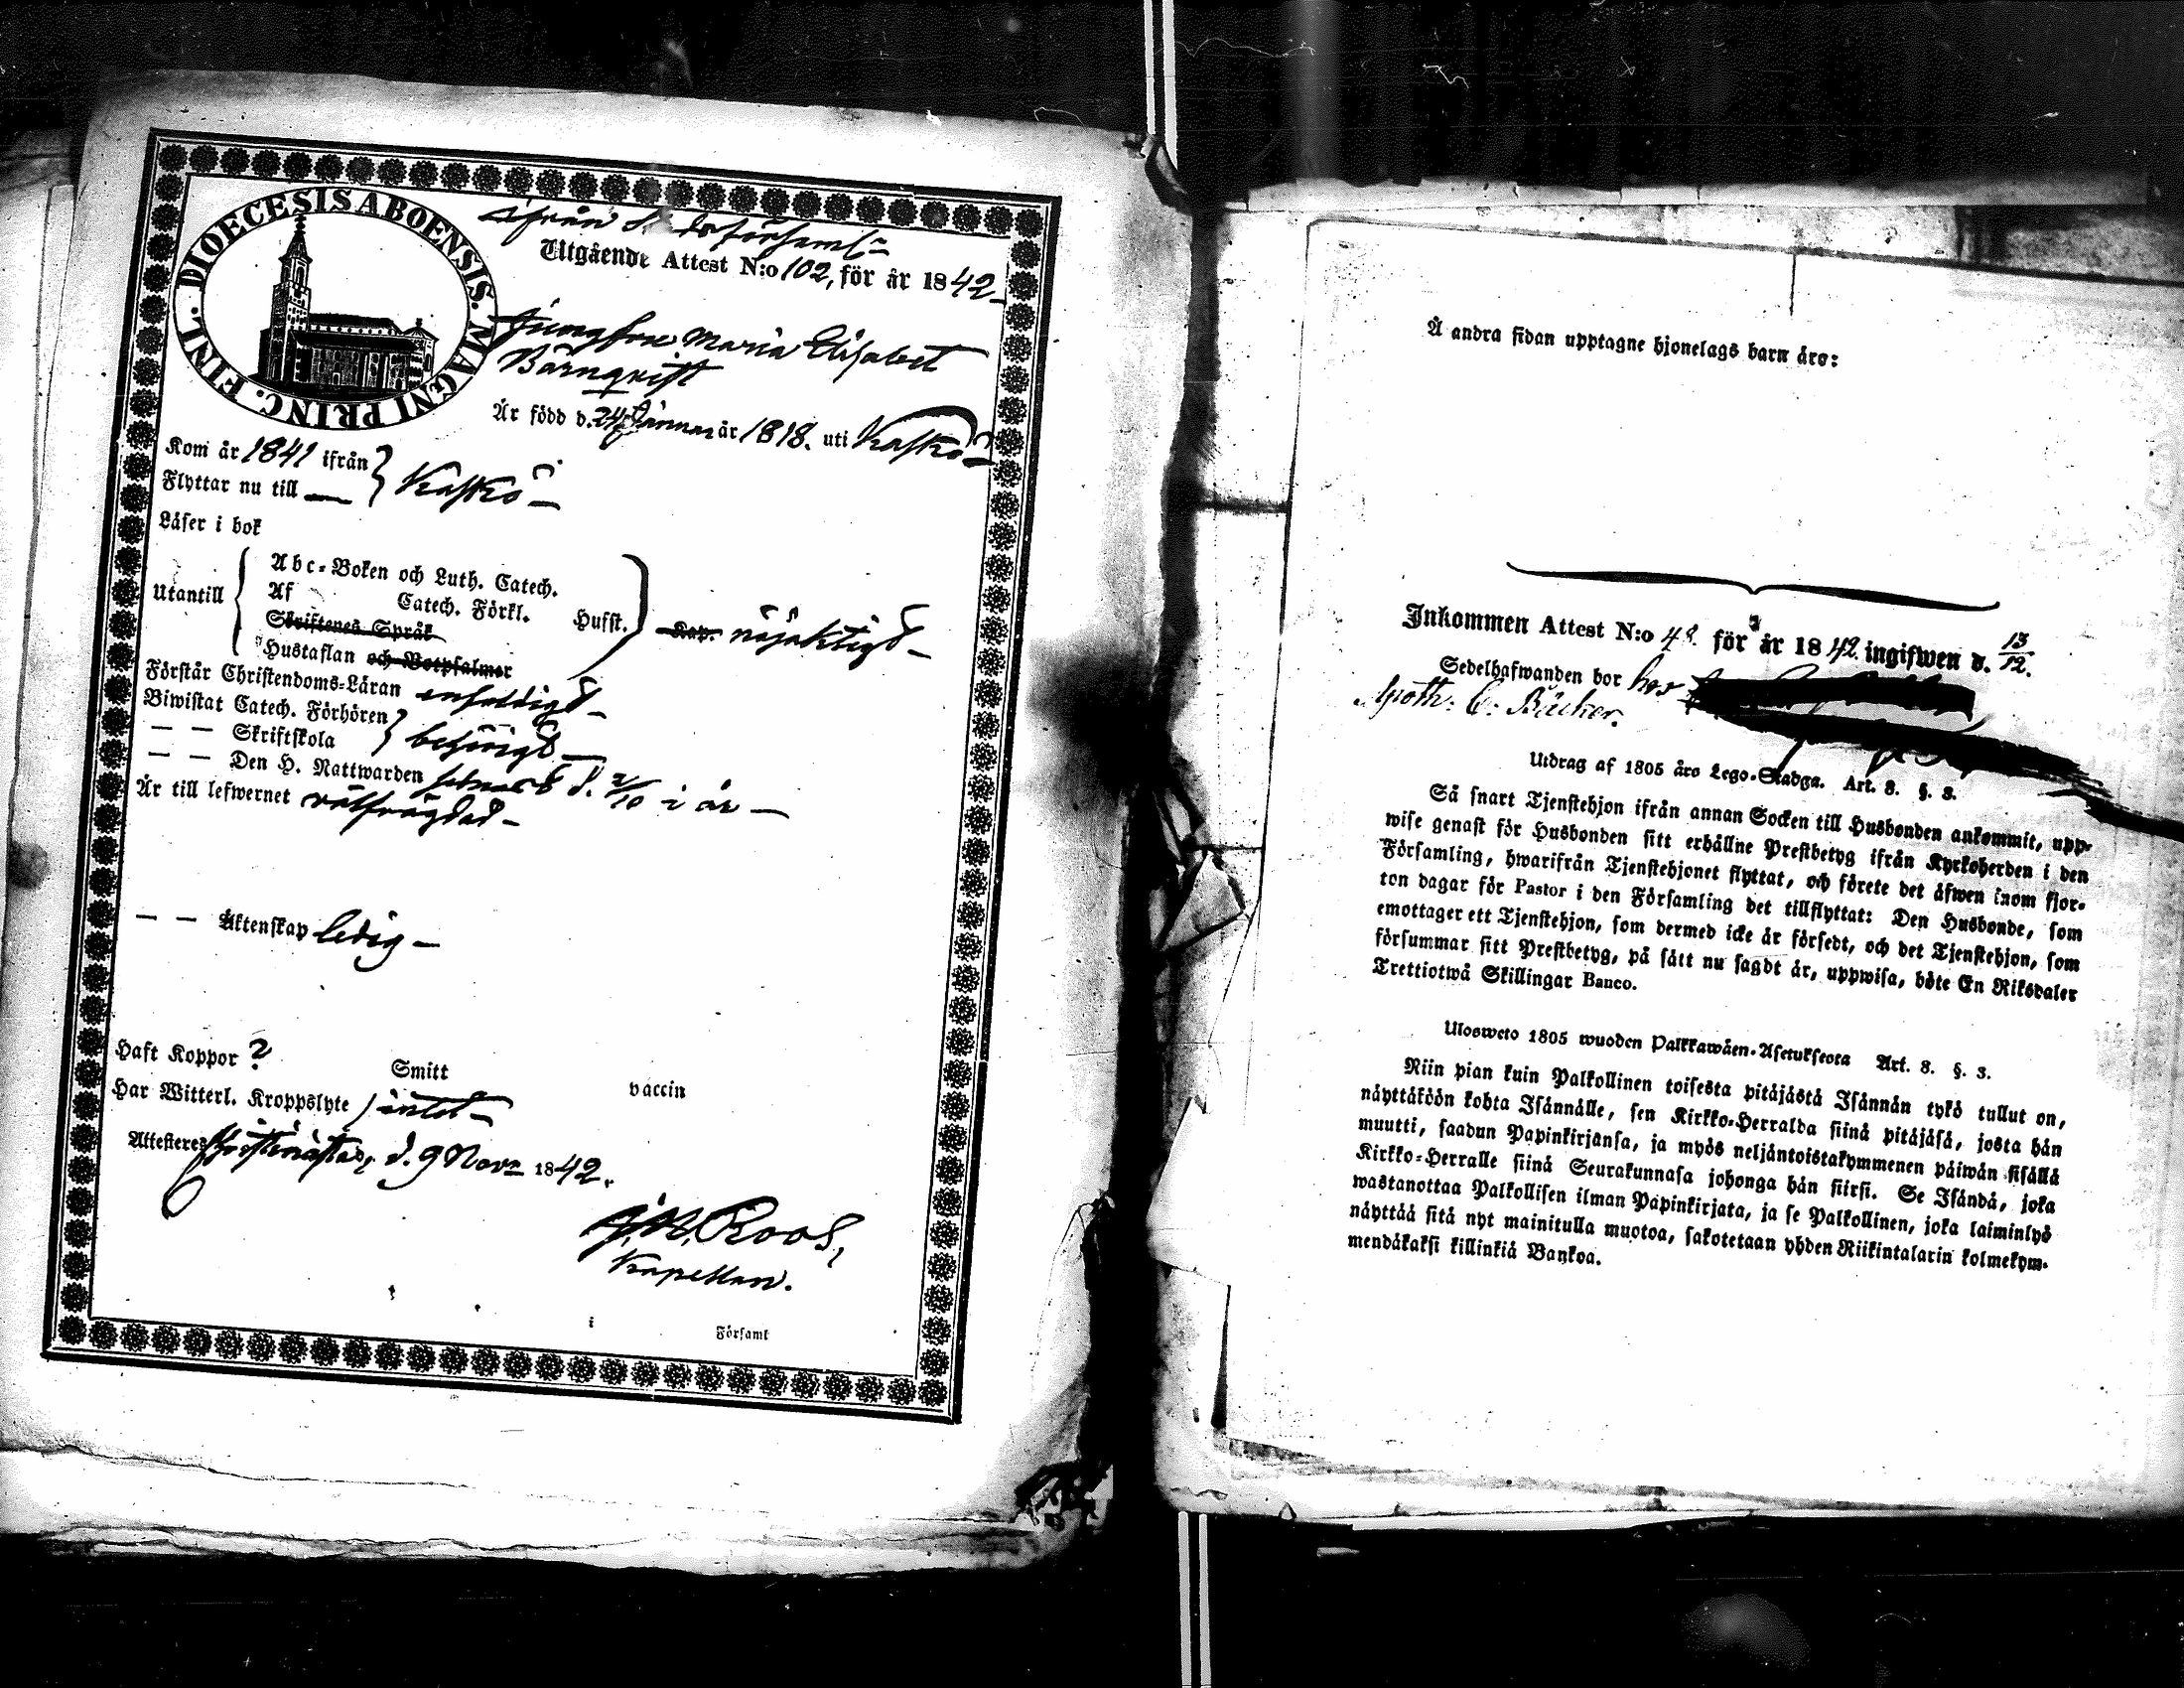 DIOECESIS ABOENSIS. MAGNI PRINC. FINL.
ifrån Stadsförsaml:n
Utgående Attest N:o 102, för år 1842
Jungfru Maria Elisabet
Bärnqvist
Är född d. 24 Januar år 1818. uti Kaskö
Kom år 1841 ifrån } Kaskö
Flyttar nu till —
Läser i bok
Utantill
Abc-Boken och Luth. Catech.
Af Catech. Förkl. Hufst.
Skriftenes Språk
Hustaflan och Botpsalmer
nöjaktigt
Förstår Christendoms-Läran enfaldigt
Biwistat Catech. Förhören } behörigt
— — Skriftskola
— — Den H. Nattwarden senast d. 2/10 i år —
Är till lefwernet välfrägdad
— — Äktenskap ledig —
Haft Koppor ? Smitt vaccin
Har Witterl. Kroppslyte intet
Attesteres Christinestad, d. 9 Nov: 1842.
Roos,
Kapellan.
i Församl
Å andra sidan upptagne hjonelags barn äro:
Inkommen Attest N:o 48. för år 1842. ingifwen d. 13/12.
Sedelhafwanden bor hos
Apoth: C. Bäcker.
Utdrag af 1805 års Lego-Stadga. Art. 8. §. 3.
Så snart Tjenstehjon ifrån annan Socken till Husbonden ankommit, upp-
wise genast för Husbonden sitt erhållne Prestbetyg ifrån Kyrkoherden i den
Församling, hwarifrån Tjenstehjonet flyttat, och förete det äfwen inom fjor-
ton dagar för Pastor i den Församling det tillflyttat: Den Husbonde, som
emottager ett Tjenstehjon, som dermed icke är försedt, och det Tjenstehjon, som
försummar sitt Prestbetyg, på sätt nu sagdt är, uppwisa, böte En Riksdaler
Trettiotwå Skillingar Banco.
Ulosweto 1805 wuoden Palkkawäen-Asetuksesta Art. 8. §. 3.
Niin pian kuin Palkollinen toisesta pitäjästä Isännän tykö tullut on,
näyttäköön kohta Isännälle, sen Kirkko-Herralda siinä pitäjäsä, josta hän
muutti, saadun Papinkirjansa, ja myös neljäntoistakymmenen päiwän sisällä
Kirkko-Herralle siinä Seurakunnasa johonga hän siirsi. Se Isändä, joka
wastanottaa Palkollisen ilman Papinkirjata, ja se Palkollinen, joka laiminlyö
näyttää sitä nyt mainitulla muotoa, sakotetaan yhden Riikintalarin kolmekym-
mendäkaksi killinkiä Bankoa.